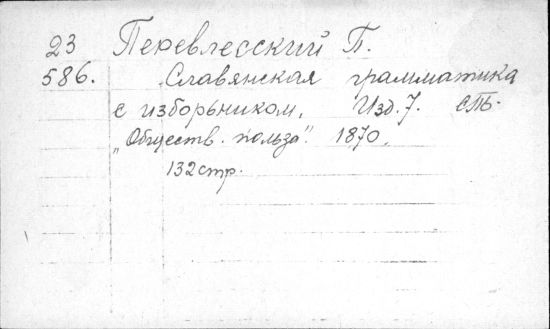 23 Перевлесский П.
586. Славянская грамматика
с изборьником. Изд. 7. СПЬ.
„Обществ. польза". 1870.
132 стр.